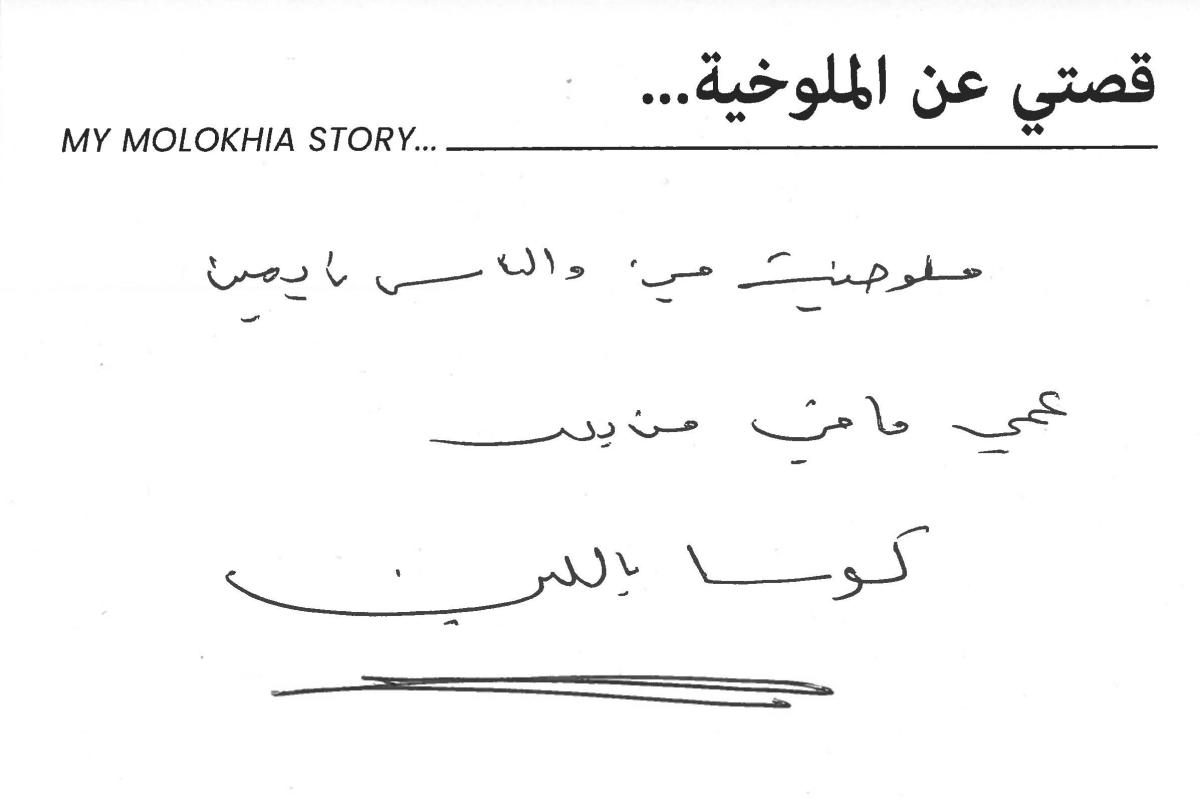 قصتي عن الملوخية...
MY MOLOKHIA STORY...
ملوخيت مين والناس نايمين
عمي ما في منديل
كوسا باللبن